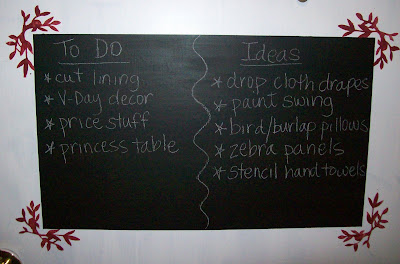 To Do
* cut lining
* V-Day decor
* price stuff
* princess table
Ideas
* drop cloth drapes
* paint swing
* bird/burlap pillows
* zebra panels
* stencil hand towels